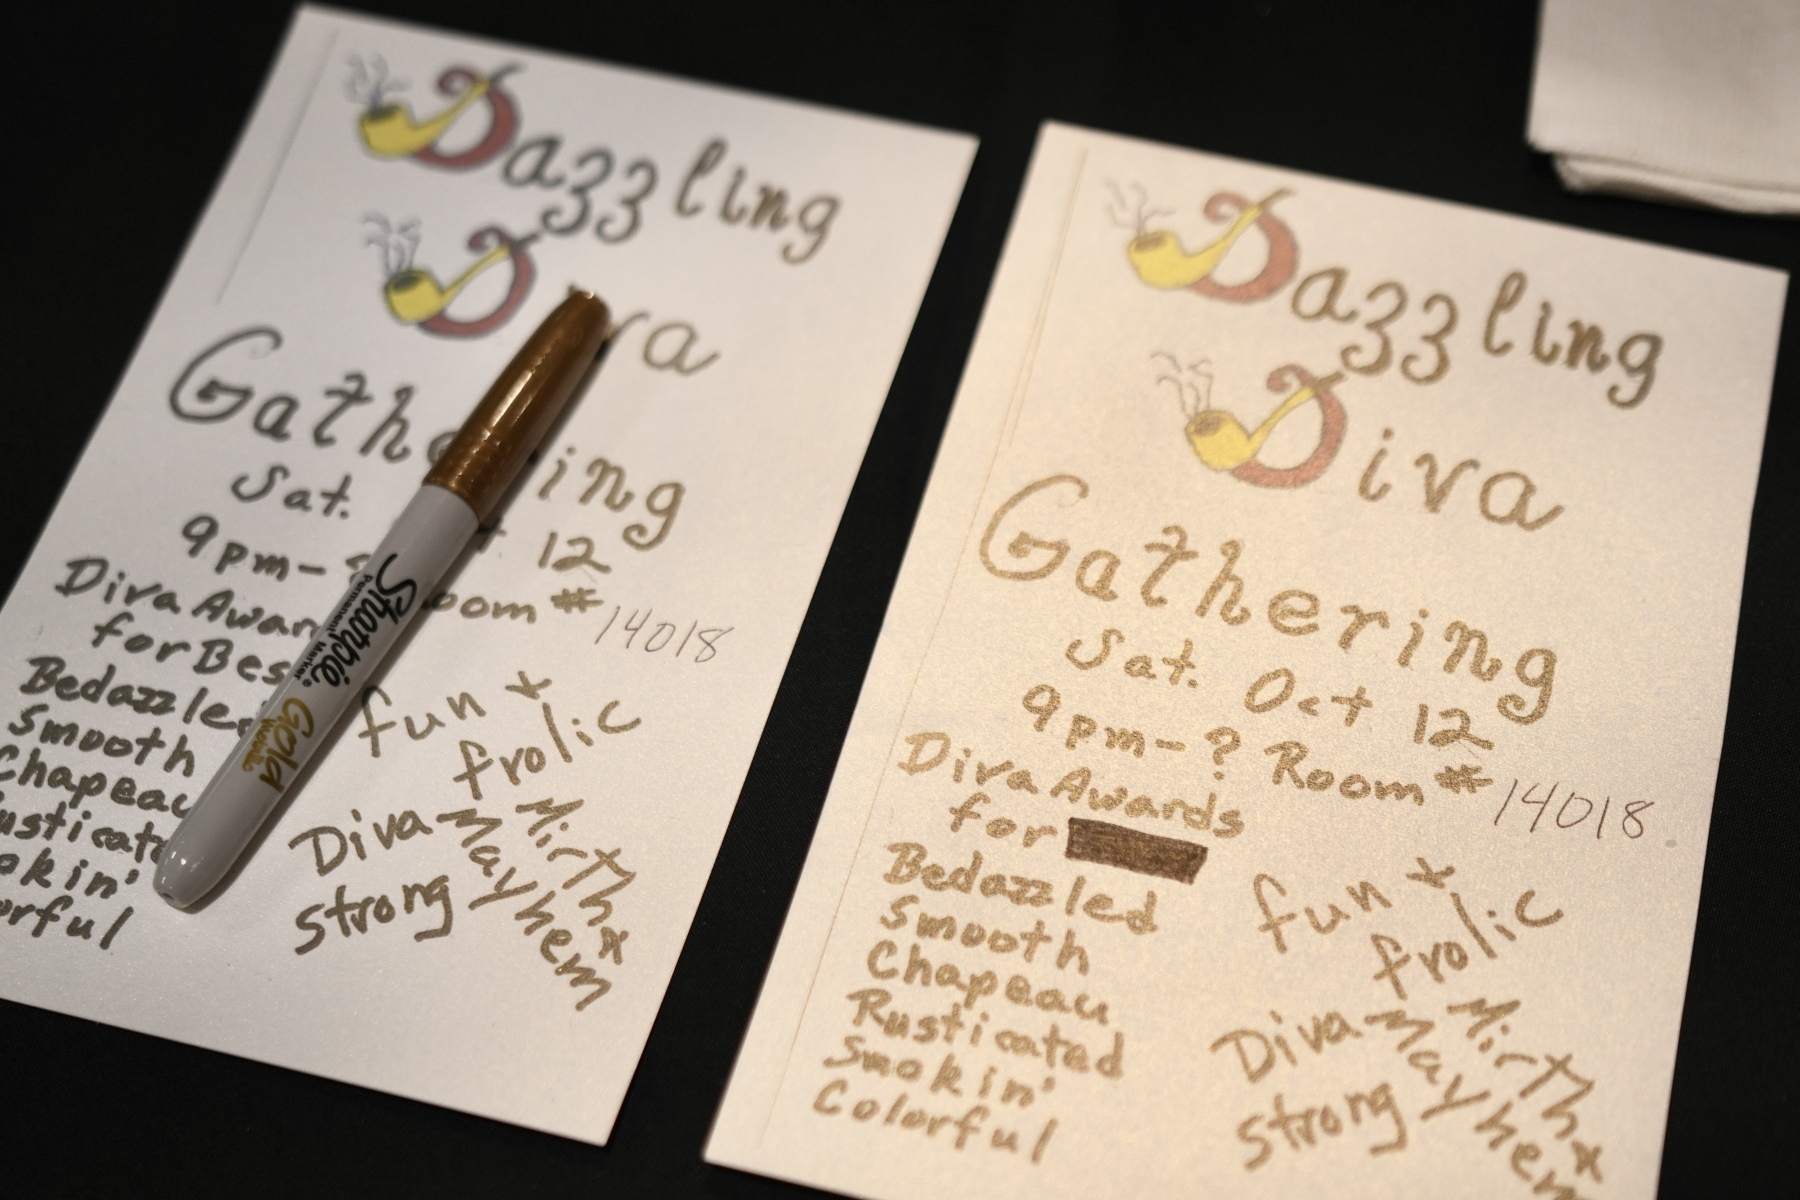 Dazzling
Diva
Gathering
Sat. Oct 12
9pm- Room #14018
Diva Awar
for Bes
Bedazzled
Smooth
Chapeau
fun &
frolic
Diva
strong
Mirth &
Mayhem
Sharpie
Permanent Marker
Gold
Dazzling
Diva
Gathering
Sat. Oct 12
9pm-? Room #14018
Diva Awards
for
Bedazzled
Smooth
Chapeau
Rusticated
Smokin'
Colorful
fun &
frolic
Diva
strong
Mirth &
Mayhem